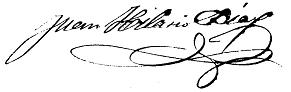 Juan Hilario Díaz